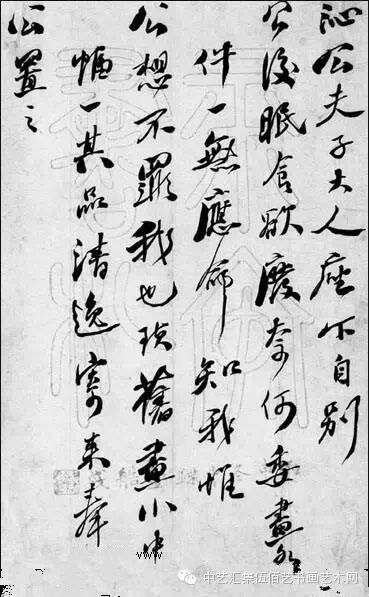 沁公夫子大人座下自别
公後眠食欲廢奈何委畫各
件一無應命知我惟
公想不罪我也頃舊畫小中
幅一其品清逸寄来奉
公置之
中艺汇柒伍佰艺书画艺术网